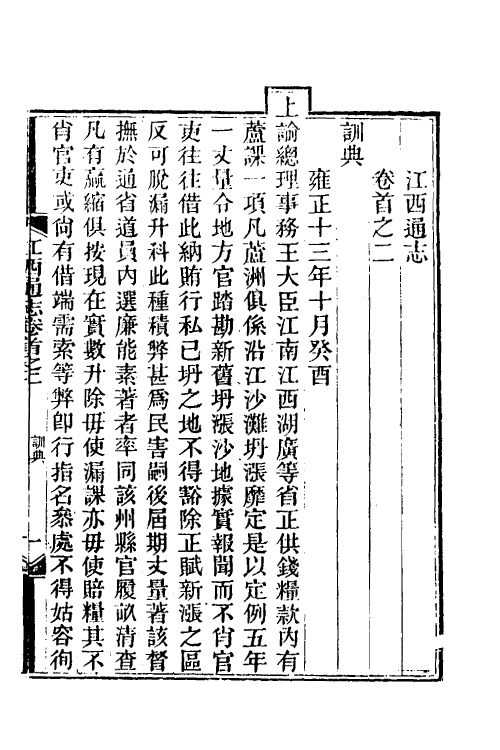 江西通志
卷首之二
訓典
雍正十三年十月癸酉
上諭總理事務王大臣江南江西湖廣等省正供錢糧款內有
蘆課一項凡蘆洲俱係沿江沙灘坍漲靡定是以定例五年
一丈量令地方官踏勘新舊坍漲沙地據實報聞而不肖官
吏往往借此納賄行私已坍之地不得豁除正賦新漲之區
反可脫漏升科此種積弊甚爲民害嗣後屆期丈量著該督
撫於通省道員內選廉能素著者率同該州縣官履畝清查
凡有贏縮俱按現在實數升除毋使漏課亦毋使賠糧其不
肖官吏或尚有借端需索等弊卽行指名叅處不得姑容徇
江西通志卷首之二
訓典
一